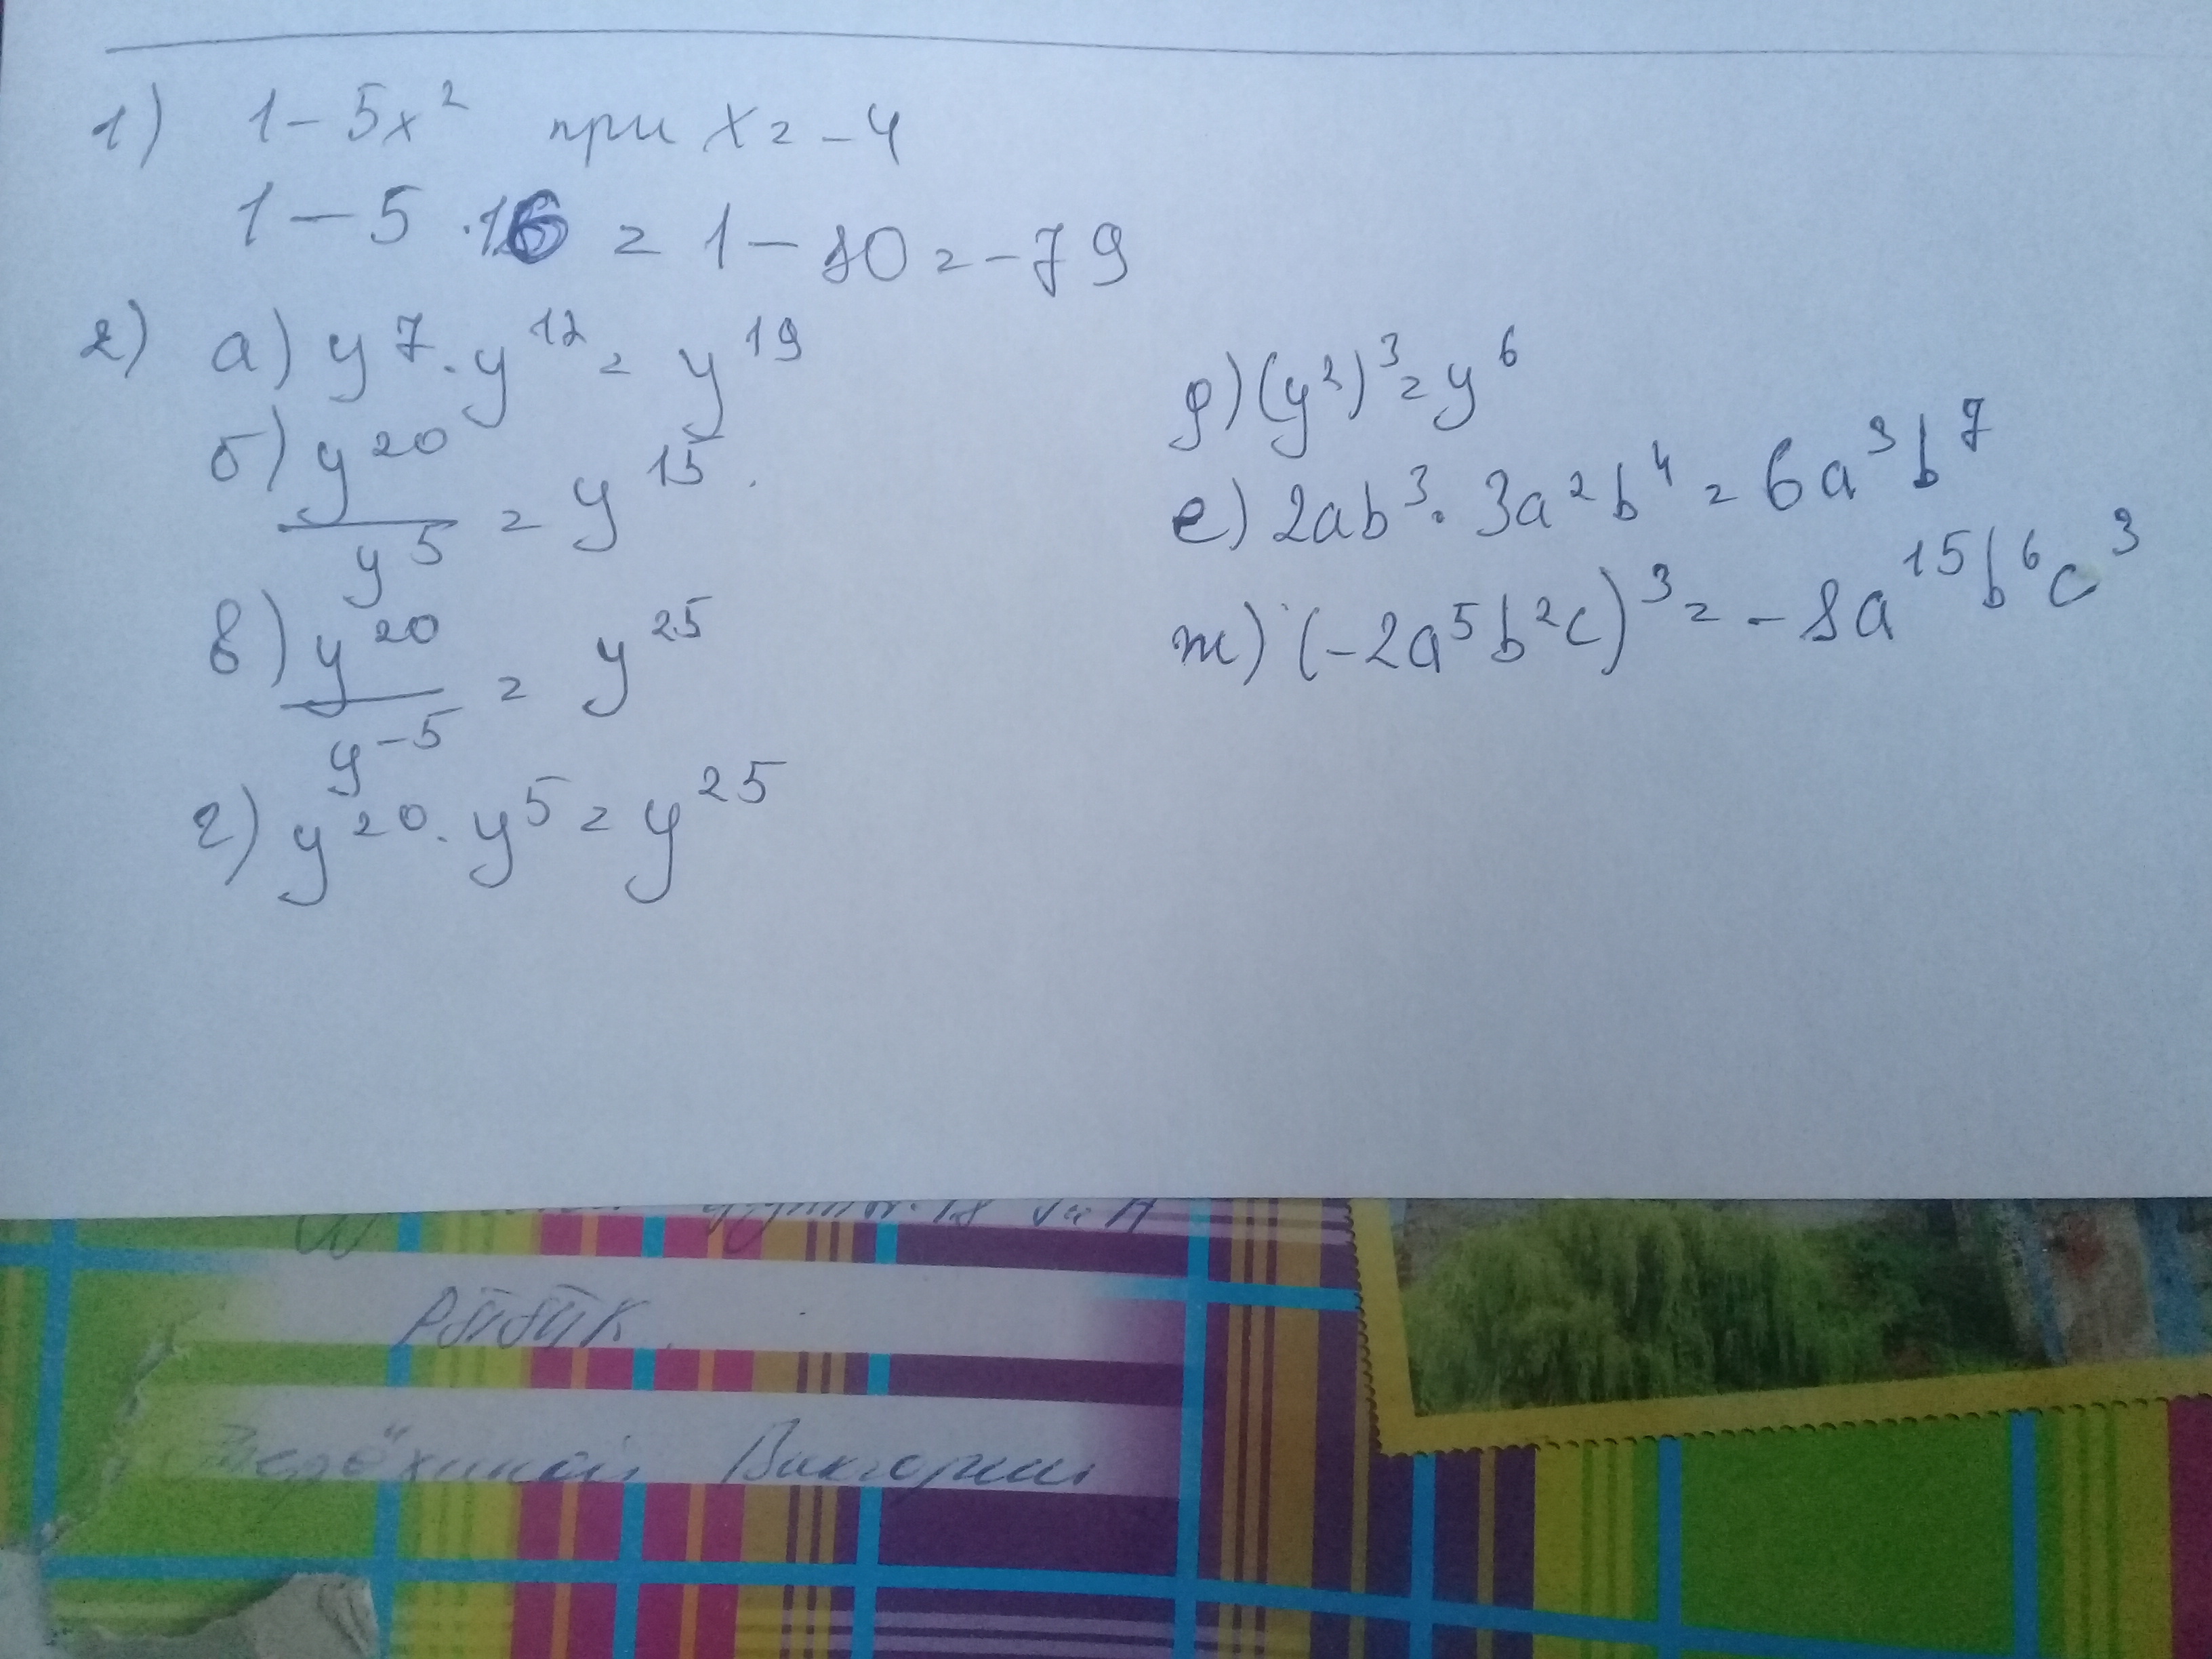 1) 1 - 5x² при x = -4
1 - 5 · 16 = 1 - 80 = -79
2) а) y⁷ · y¹² = y¹⁹
б) y²⁰/y⁵ = y¹⁵.
в) y²⁰/y⁻⁵ = y²⁵
г) y²⁰ · y⁵ = y²⁵
д) (y²)³ = y⁶
е) 2ab³ · 3a²b⁴ = 6a³b⁷
ж) (-2a⁵b²c)³ = -8a¹⁵b⁶c³
Виктории